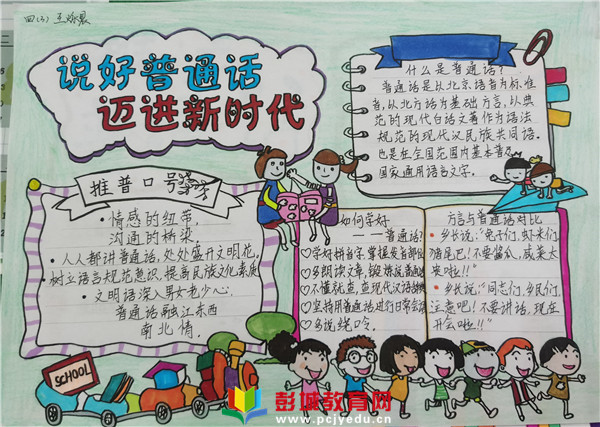 四(3)
说好普通话
迈进新时代
什么是普通话?
普通话是从北京语音为标准
音,从北方话为基础方言,从典
范的现代白话文著作为语法
规范的现代汉民族共同语。
也是在全国范围内基本普及
国家通用语言文字。
推普口号
•情感的纽带,
沟通的桥梁。
•人人都讲普通话,处处盛开文明花。
•树立语言规范意识,提高民族文化素质
•文明话深入男女老少心,
普通话融江东西
南北情。
如何学好
——普通话?
♡学好拼音字,掌握发音部位
♡多朗读文章,锻炼说普
♡不懂就点,查现代汉语
♡坚持用普通话进行日常会话
♡多说绕口令。
方言与普通话对比
•乡长说:“兔子们,虾米们,
猪尾巴!不要酱瓜,咸菜太
贵啦!!”
•乡长说:“同志们,乡民们,
注意吧!不要讲话,现在
开会啦!!”
SCHOOL
彭城教育网
www.pcjyedu.cn